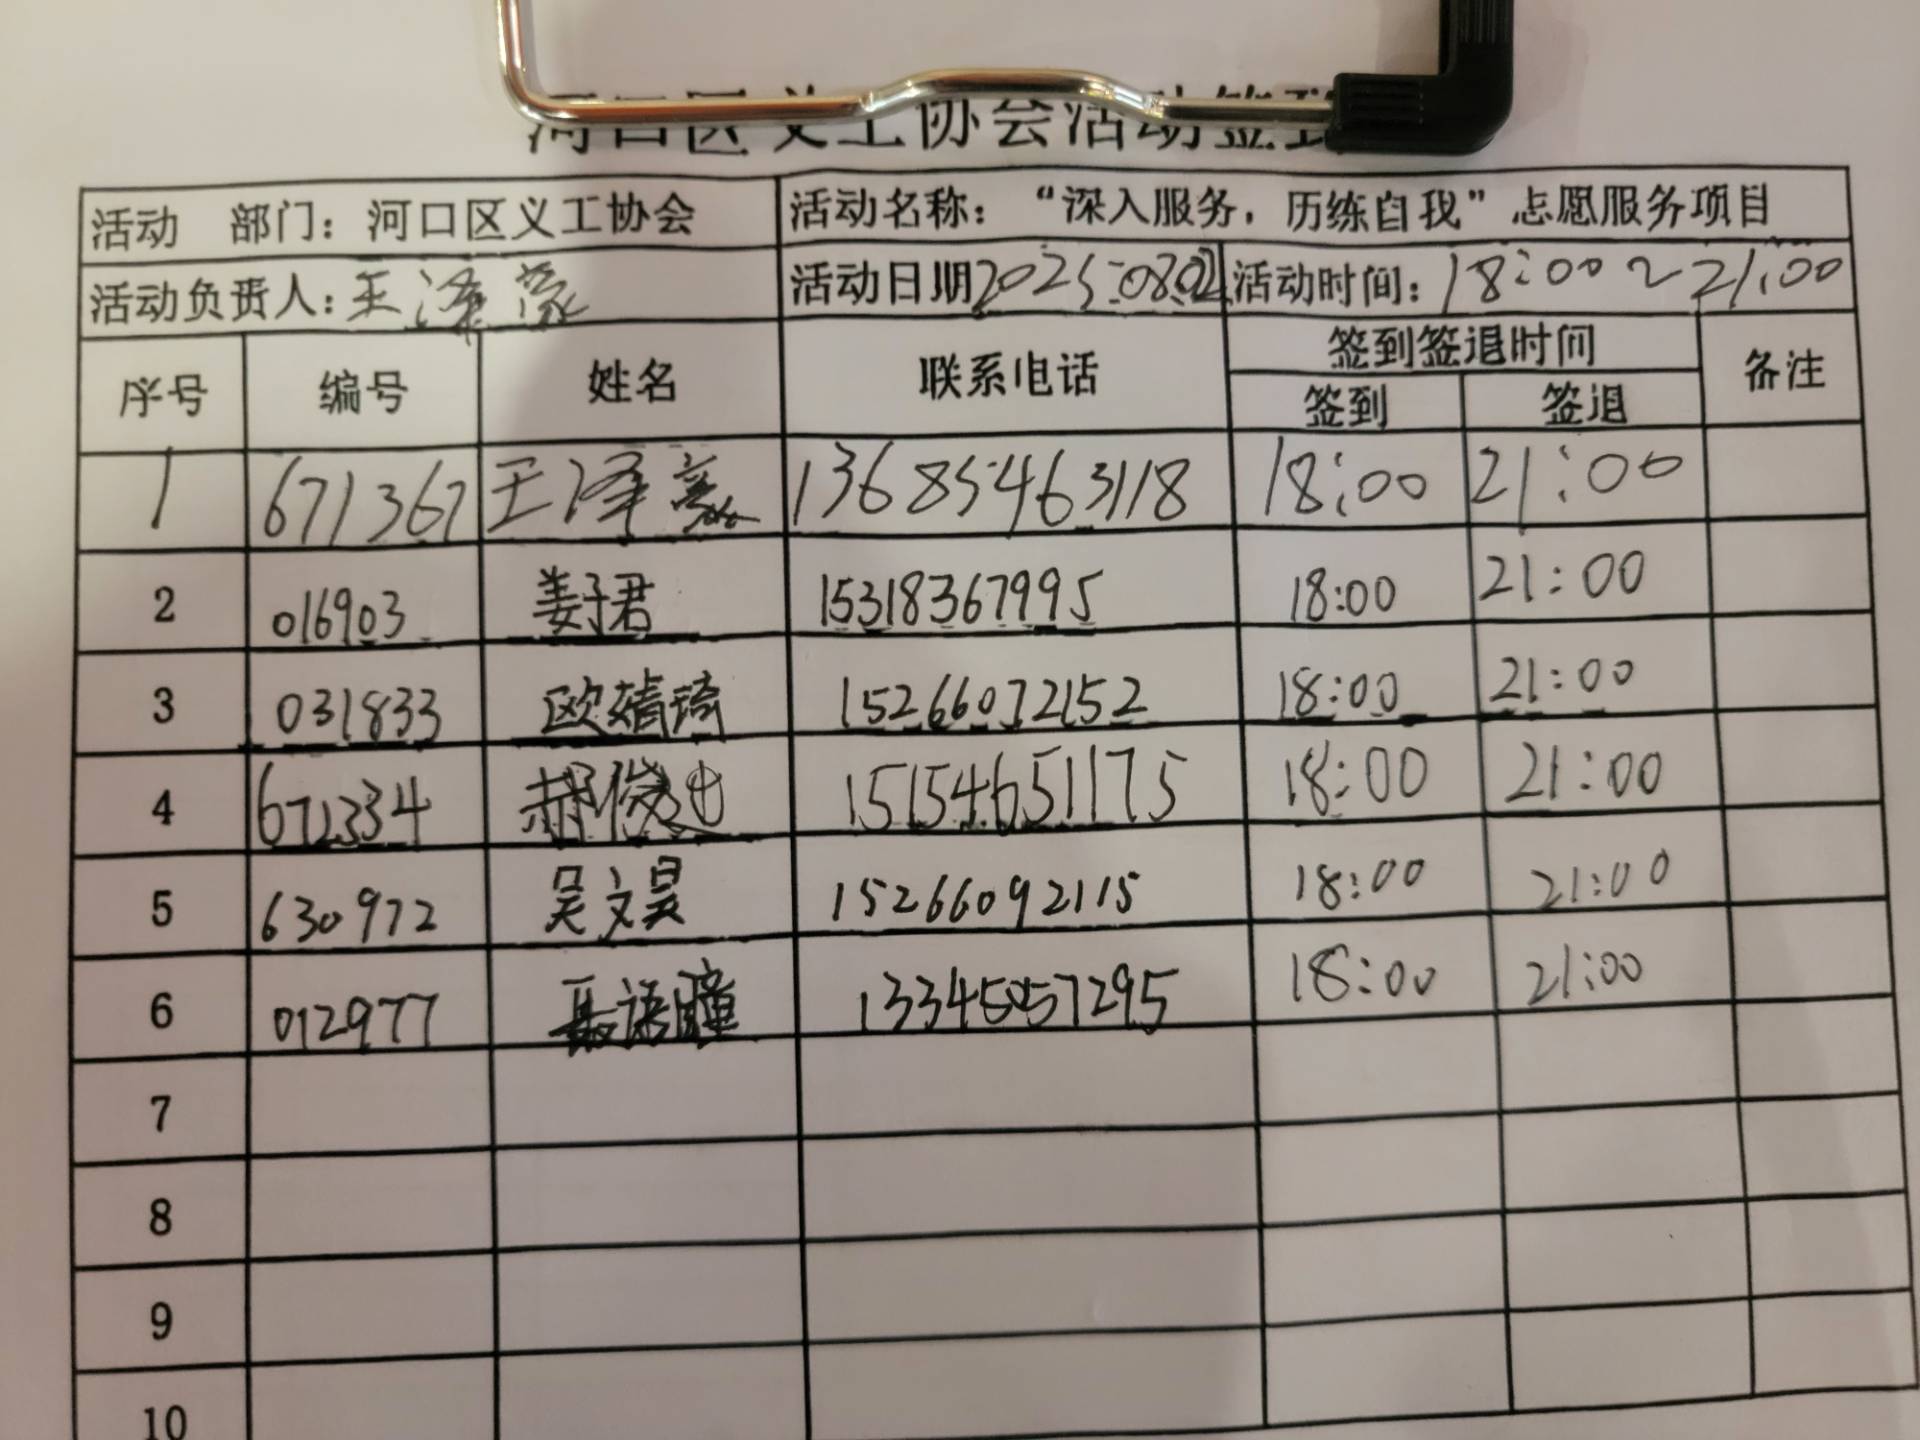 河口区义工协会活动签到
活动 部门：河口区义工协会 活动名称：“深入服务，历练自我”志愿服务项目
活动负责人：王泽豪 活动日期2025.08.02 活动时间：18:00~21:00
序号 编号 姓名 联系电话 签到签退时间 备注
签到 签退
1 671367 王泽豪 13685463118 18:00 21:00
2 016903 姜子君 15318367995 18:00 21:00
3 031833 欧婧琦 15266072152 18:00 21:00
4 671334 郝俊 15154651175 18:00 21:00
5 630972 吴文昊 15266092115 18:00 21:00
6 012977 聂语瞳 13345057295 18:00 21:00
7
8
9
10